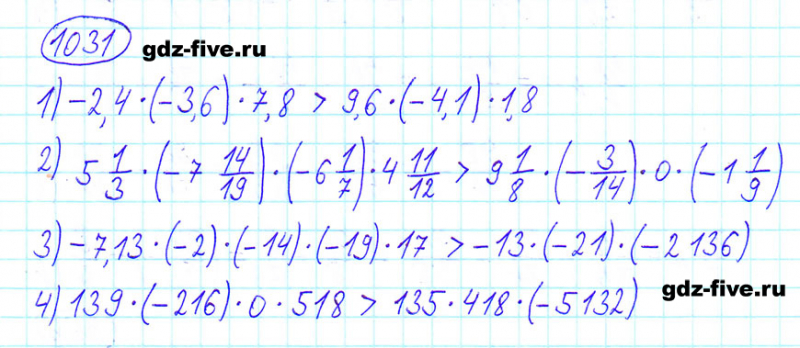 1031 gdz-five.ru
1) -2,4 · (-3,6) · 7,8 > 9,6 · (-4,1) · 1,8
2) 5 1/3 · (-7 14/19) · (-6 1/7) · 4 11/12 > 9 1/8 · (-3/14) · 0 · (-1 1/9)
3) -7,13 · (-2) · (-14) · (-19) · 17 > -13 · (-21) · (-2 136)
4) 139 · (-216) · 0 · 518 > 135 · 418 · (-5132)
gdz-five.ru